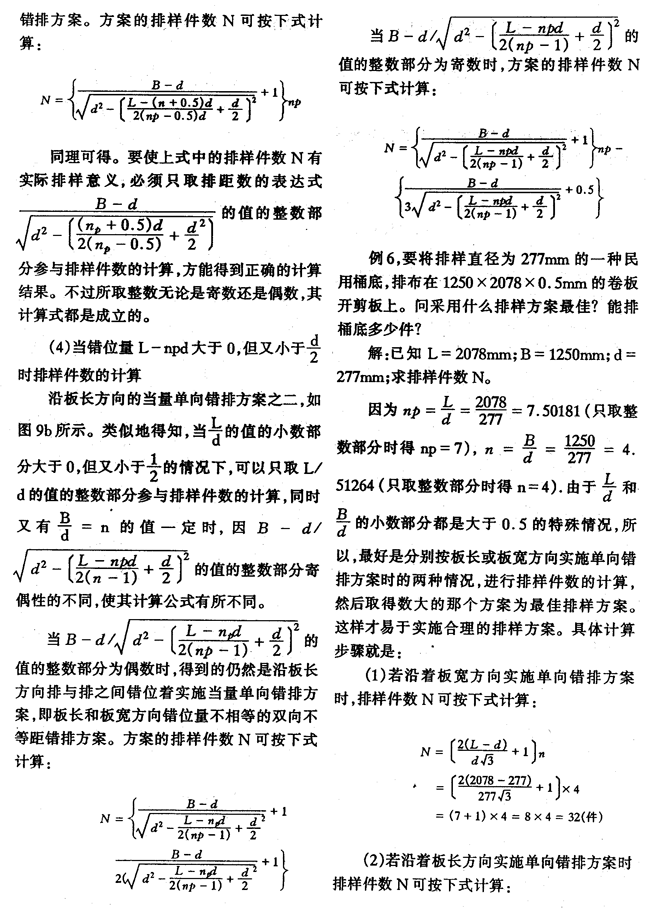 错排方案。方案的排样件数 N 可按下式计
算:
N = { (B-d) / √(d² - [ (L-(n+0.5)d) / (2(np-0.5)d) + d/2 ]²) + 1 } np
同理可得。要使上式中的排样件数 N 有
实际排样意义,必须只取排距数的表达式
(B-d) / √(d² - [ ((n_p+0.5)d) / (2(n_p-0.5)) + d²/2 ]) 的值的整数部
分参与排样件数的计算,方能得到正确的计算
结果。不过所取整数无论是寄数还是偶数,其
计算式都是成立的。
(4)当错位量 L-npd 大于 0,但又小于 d/2
时排样件数的计算
沿板长方向的当量单向错排方案之二,如
图 9b 所示。类似地得知,当 L/d 的值的小数部
分大于 0,但又小于 1/2 的情况下,可以只取 L/
d 的值的整数部分参与排样件数的计算,同时
又有 B/d = n 的值一定时,因 B - d/
√(d² - [ (L-npd) / (2(n-1)) + d/2 ]²) 的值的整数部分寄
偶性的不同,使其计算公式有所不同。
当 B-d/√(d² - [ (L-npd) / (2(np-1)) + d/2 ]²) 的
值的整数部分为偶数时,得到的仍然是沿板长
方向排与排之间错位着实施当量单向错排方
案,即板长和板宽方向错位量不相等的双向不
等距错排方案。方案的排样件数 N 可按下式
计算:
N = { (B-d) / √(d² - (L-npd) / (2(np-1)) + d²/2) + 1
(B-d) / 2(√(d² - (L-npd) / (2(np-1)) + d²/2) + 1 }
当 B-d/√(d² - [ (L-npd) / (2(np-1)) + d/2 ]²) 的
值的整数部分为寄数时,方案的排样件数 N
可按下式计算:
N = { (B-d) / √(d² - [ (L-npd) / (2(np-1)) + d/2 ]²) + 1 } np -
{ (B-d) / 3√(d² - [ (L-npd) / (2(np-1)) + d/2 ]²) + 0.5 }
例 6,要将排样直径为 277mm 的一种民
用桶底,排布在 1250×2078×0.5mm 的卷板
开剪板上。问采用什么排样方案最佳? 能排
桶底多少件?
解:已知 L=2078mm;B=1250mm;d=
277mm;求排样件数 N。
因为 np = L/d = 2078/277 = 7.50181(只取整
数部分时得 np=7),n = B/d = 1250/277 = 4.
51264(只取整数部分时得 n=4).由于 L/d 和
B/d 的小数部分都是大于 0.5 的特殊情况,所
以,最好是分别按板长或板宽方向实施单向错
排方案时的两种情况,进行排样件数的计算,
然后取得数大的那个方案为最佳排样方案。
这样才易于实施合理的排样方案。具体计算
步骤就是:
(1)若沿着板宽方向实施单向错排方案
时,排样件数 N 可按下式计算:
N = [ 2(L-d) / d√3 + 1 ] n
= [ 2(2078-277) / 277√3 + 1 ] × 4
= (7+1)×4 = 8×4 = 32(件)
(2)若沿着板长方向实施单向错排方案时
排样件数 N 可按下式计算: